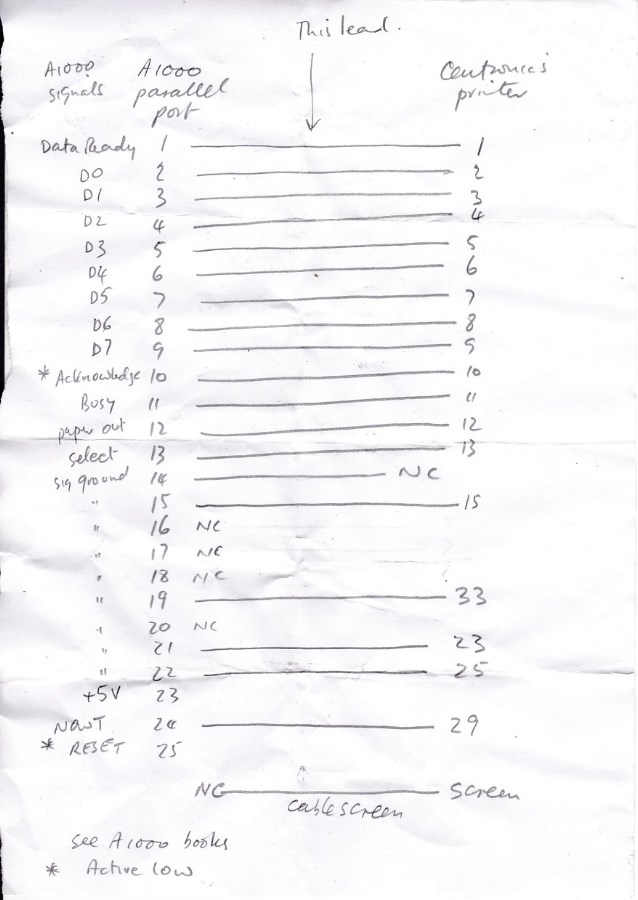 This lead.
A1000 signals A1000 parallel port Centronics printer
Data Ready 1 1
D0 2 2
D1 3 3
D2 4 4
D3 5 5
D4 6 6
D5 7 7
D6 8 8
D7 9 9
* Acknowledge 10 10
Busy 11 11
paper out 12 12
select 13 13
sig ground 14 NC
" 15 15
" 16 NC
" 17 NC
" 18 NC
" 19 33
" 20 NC
" 21 23
" 22 25
+5V 23
NOWT 24 29
* RESET 25
NC cable screen screen
see A1000 books
* Active low